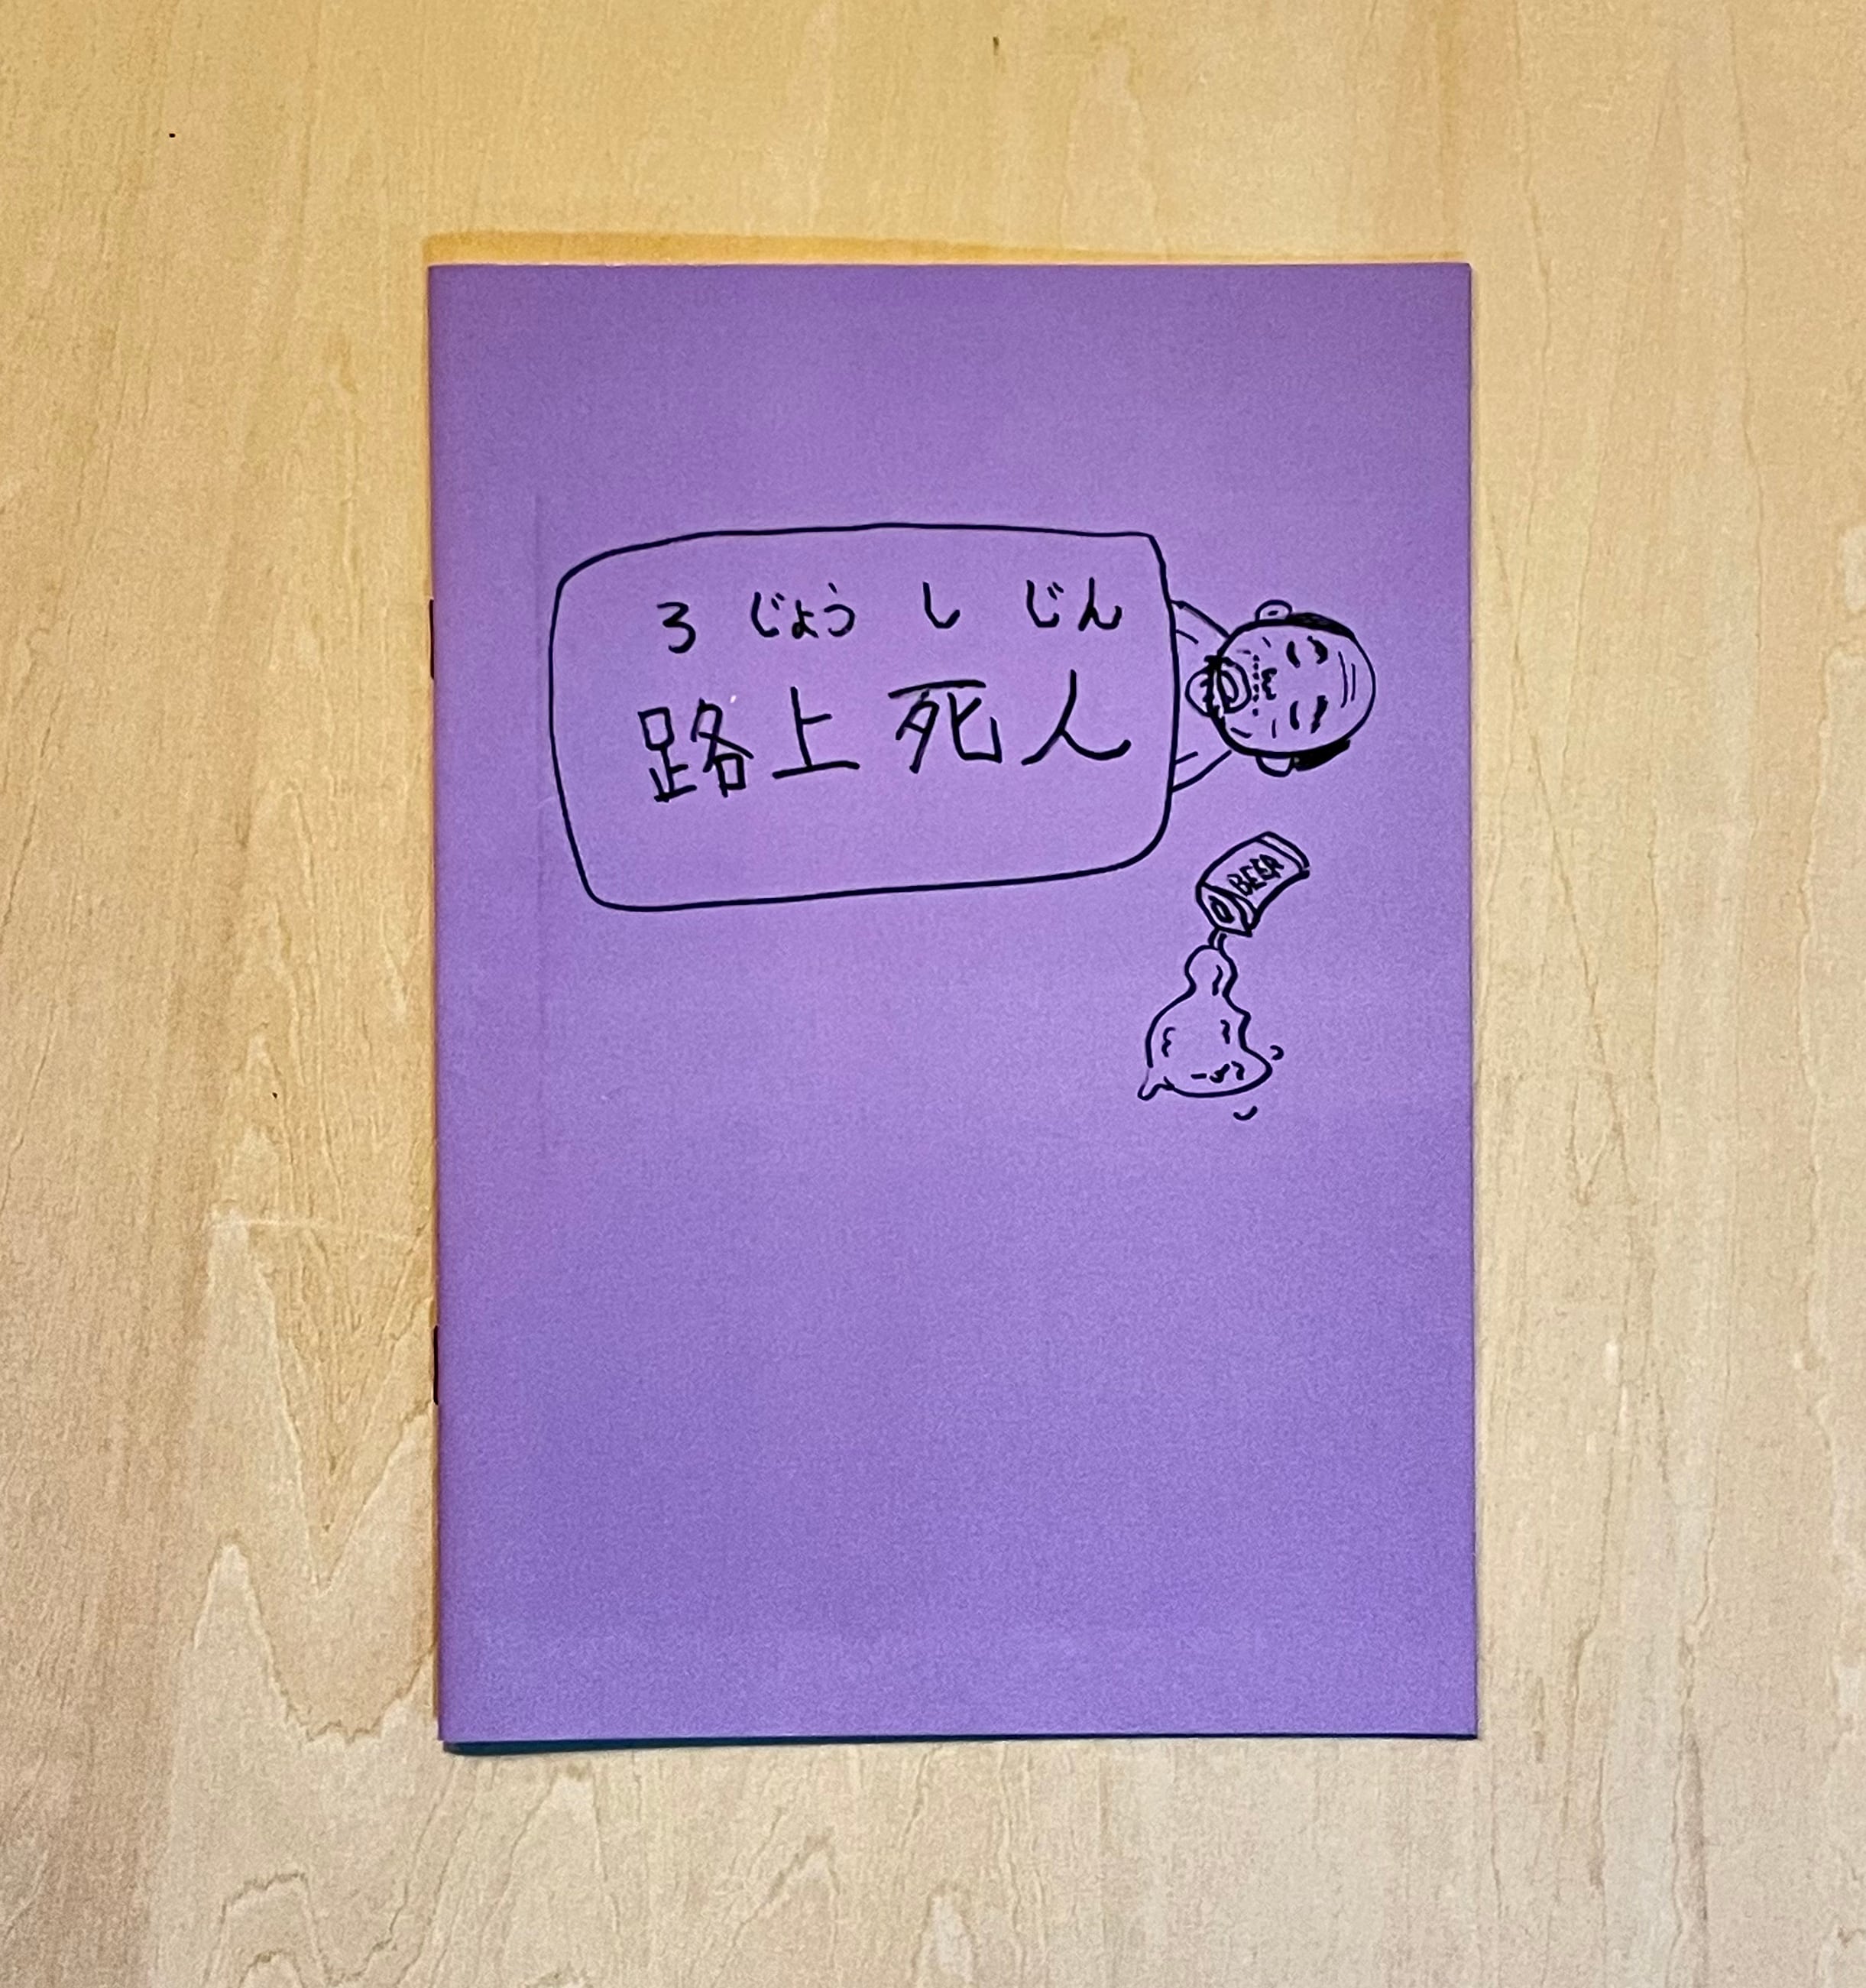 ろ じょう し じん
路上死人
BEER